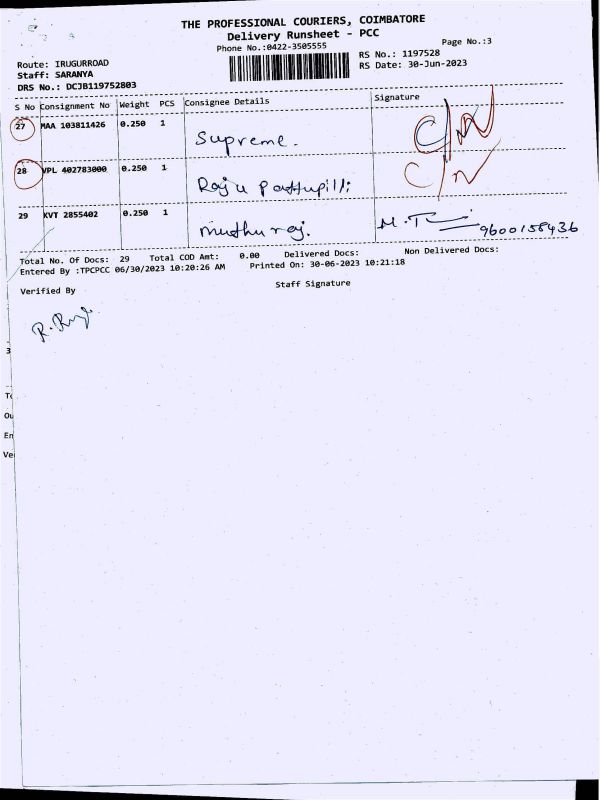 THE PROFESSIONAL COURIERS, COIMBATORE
Delivery Runsheet - PCC
Phone No.:0422-3505555
Page No.:3
Route: IRUGURROAD
RS No.: 1197528
Staff: SARANYA
RS Date: 30-Jun-2023
DRS No.: DCJB119752803
S No Consignment No Weight PCS Consignee Details Signature
27 MAA 103811426 0.250 1 Supreme.
28 VPL 402783000 0.250 1 Raju Pattupilli
29 KVT 2855402 0.250 1 muthuraj. 9600158436
Total No. Of Docs: 29 Total COD Amt: 0.00 Delivered Docs: Non Delivered Docs:
Entered By :TPCPCC 06/30/2023 10:20:26 AM Printed On: 30-06-2023 10:21:18
Verified By Staff Signature
3
To
Ou
En
Ve